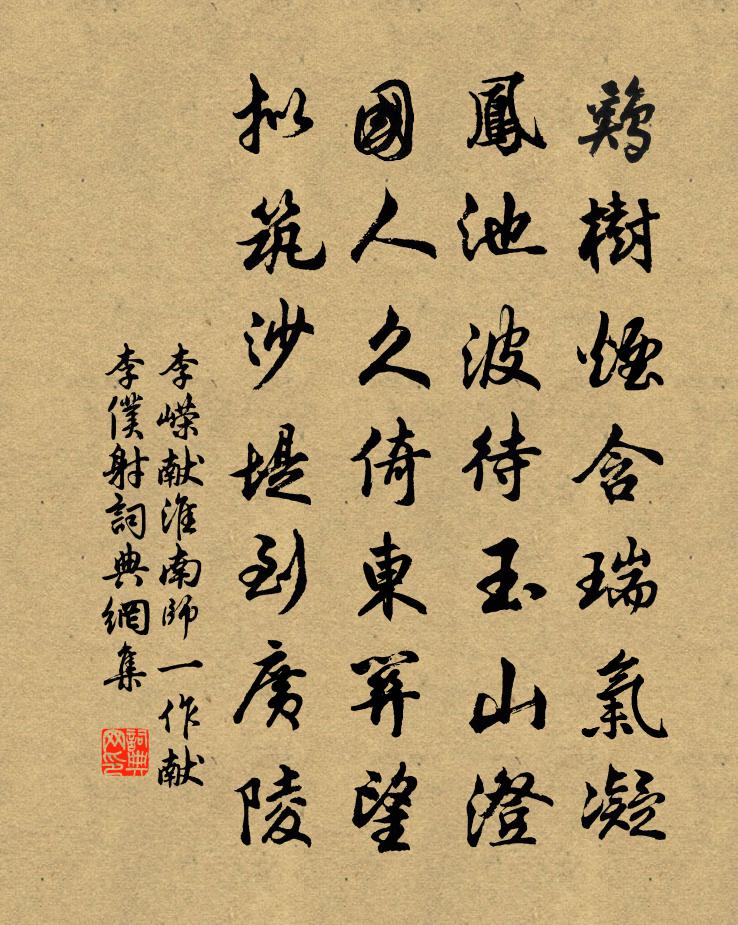 鷄樹煙含瑞氣凝
鳳池波待玉山澄
國人久倚東関望
拟筑沙堤到廣陵
李嵘献淮南師一作献
李僕射詞典網集
詞典网印